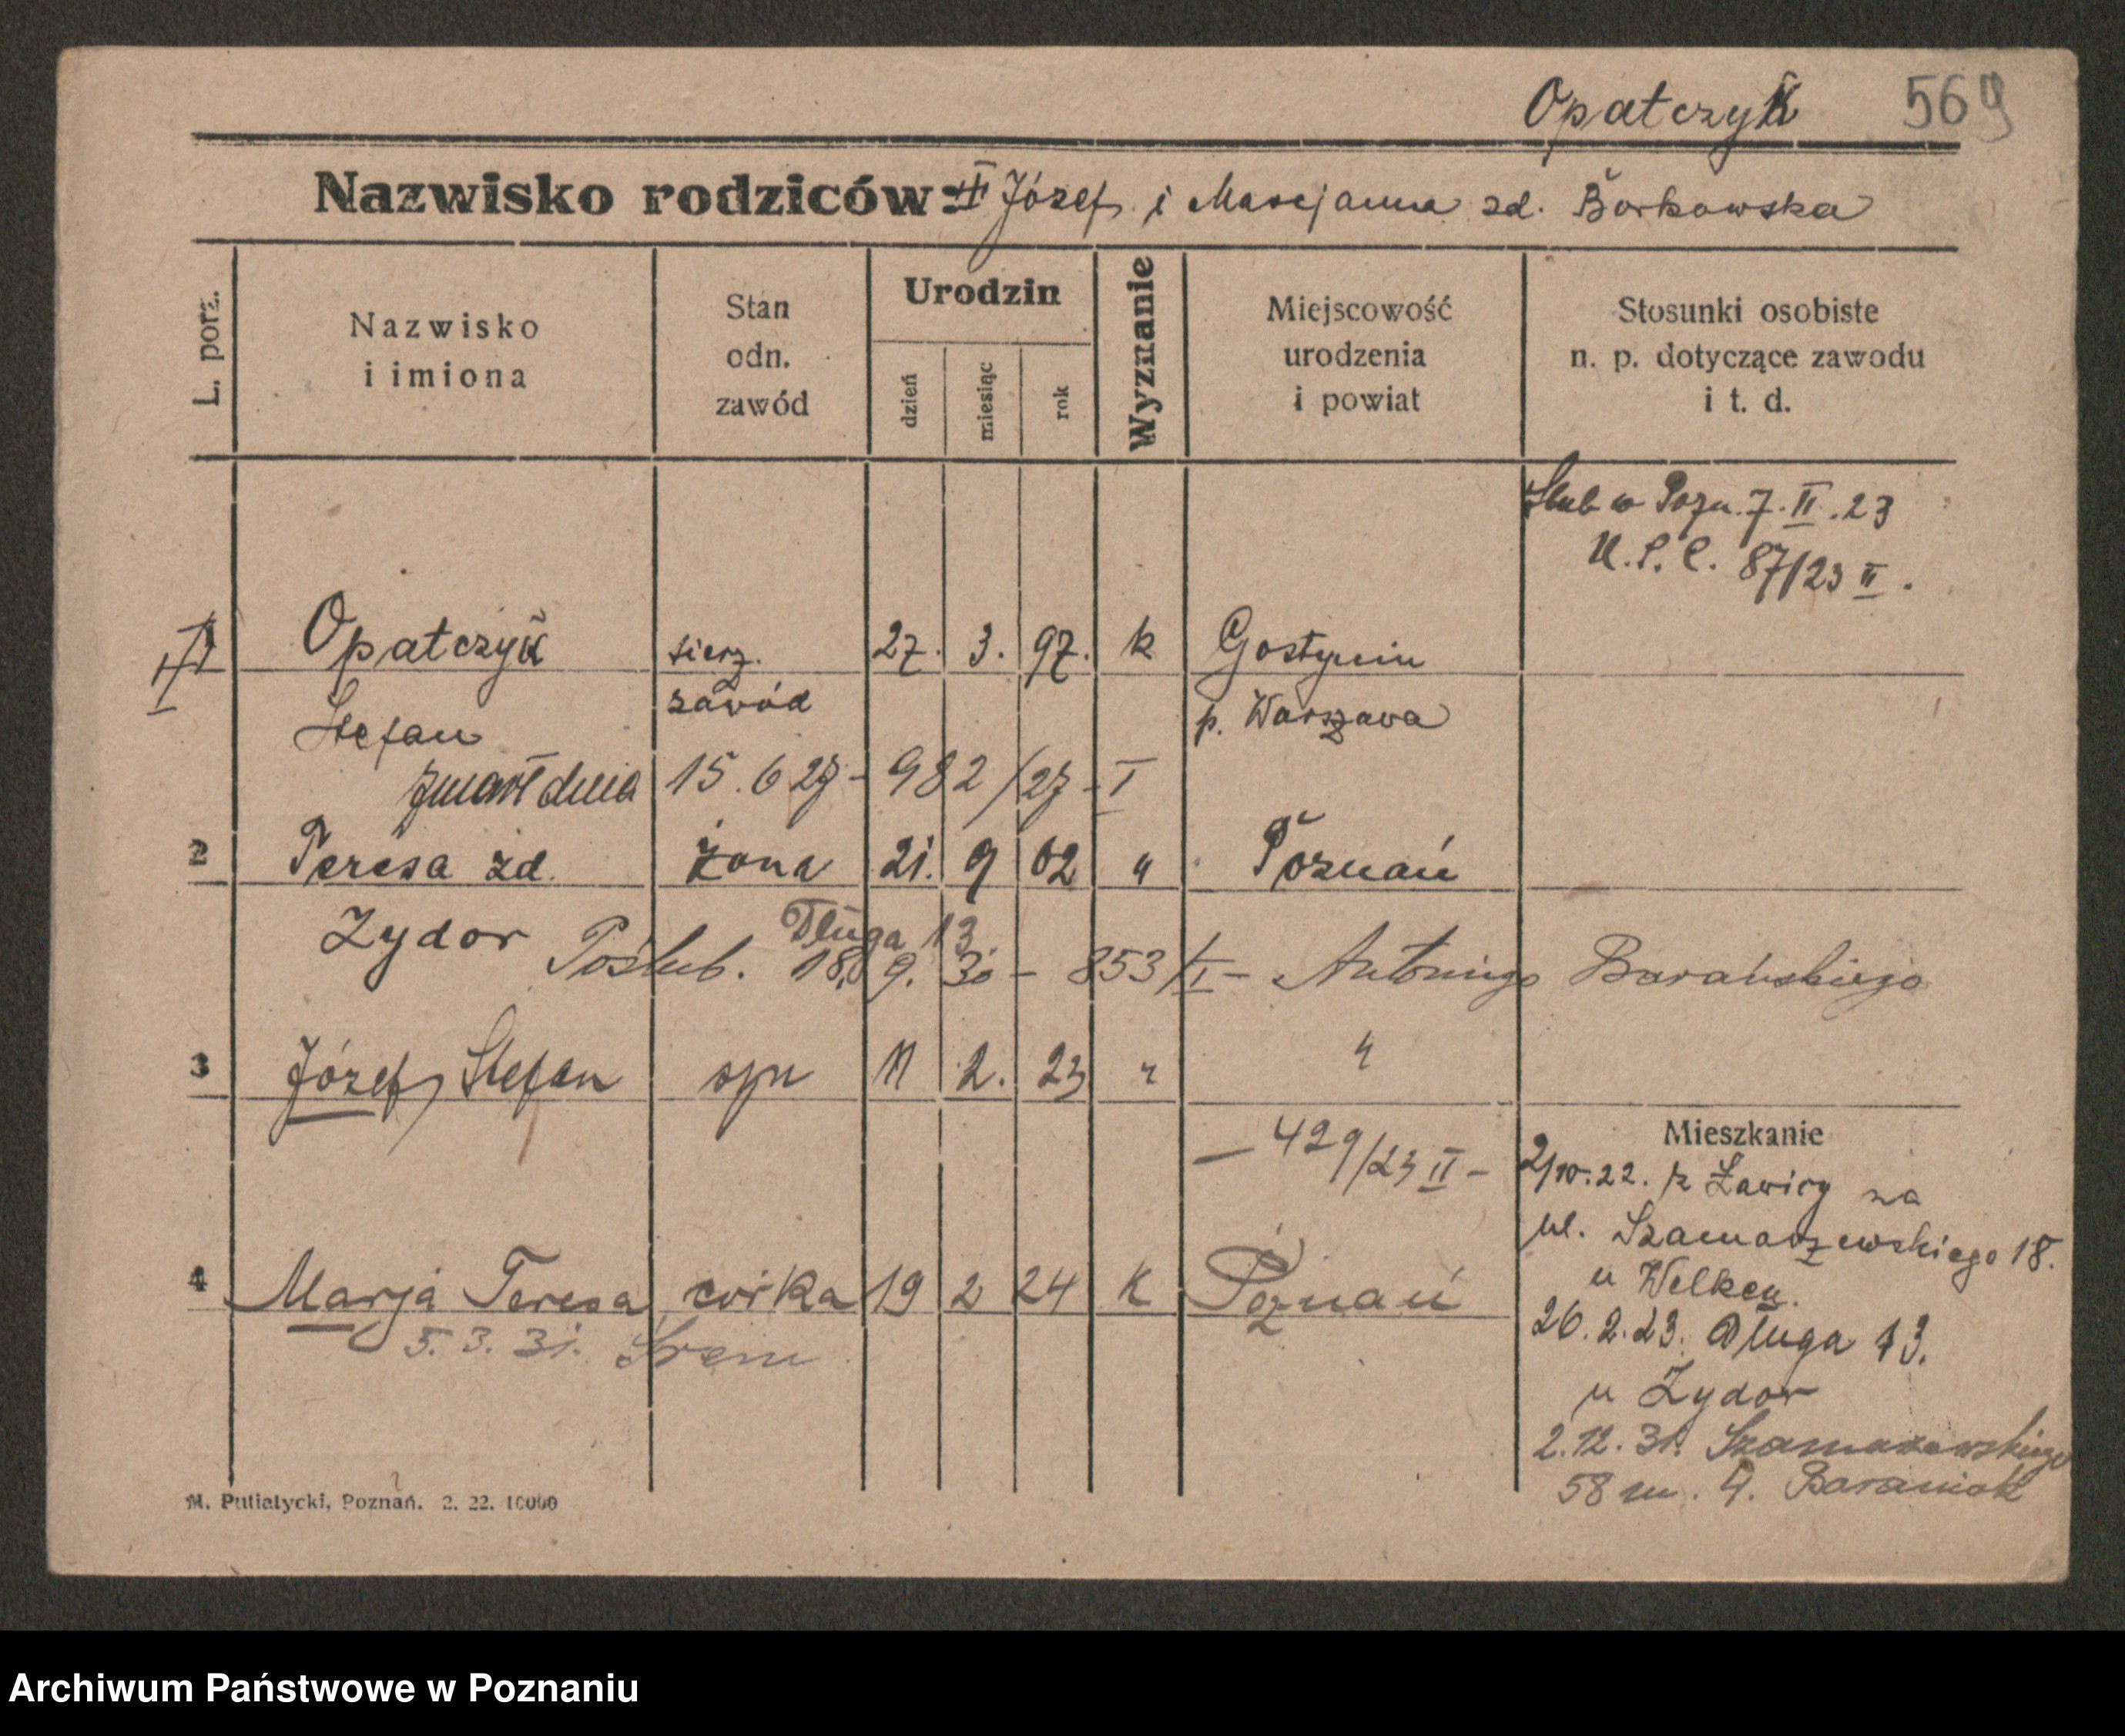 Opatczyk 569
Nazwisko rodziców: Józef i Marjanna zd. Borkowska
L. porz.
Nazwisko
i imiona
Stan
odn.
zawód
Urodzin
dzień
miesiąc
rok
Wyznanie
Miejscowość
urodzenia
i powiat
Stosunki osobiste
n. p. dotyczące zawodu
i t. d.
Ślub w Pozn. 7. II. 23
U.S.C. 87/23 II.
Opatczyk sierż. 27. 3. 97. k Gostynin
Stefan zawód p. Warszawa
zmarł dnia 15. 6 27 - 982/27 - I
2 Teresa zd. żona 21. 9 02 " Poznań
Zydor Długa 13
Poślub. 18. 9. 30 - 853/I - Antoniego Barańskiego
3 Józef, Stefan syn 11 2. 23 " "
- 429/23 II -
Mieszkanie
2/10. 22. z Ławicy na
ul. Szamarzewskiego 18.
u Welken.
4 Marja Teresa córka 19 2 24 K Poznań
5. 3. 31. Śrem
26. 2. 23. Długa 13.
u Zydor
2. 12. 31. Szamarzewskiego
58 m. 4. Baraniak
M. Putiatycki, Poznań. 2. 22. 10000
Archiwum Państwowe w Poznaniu